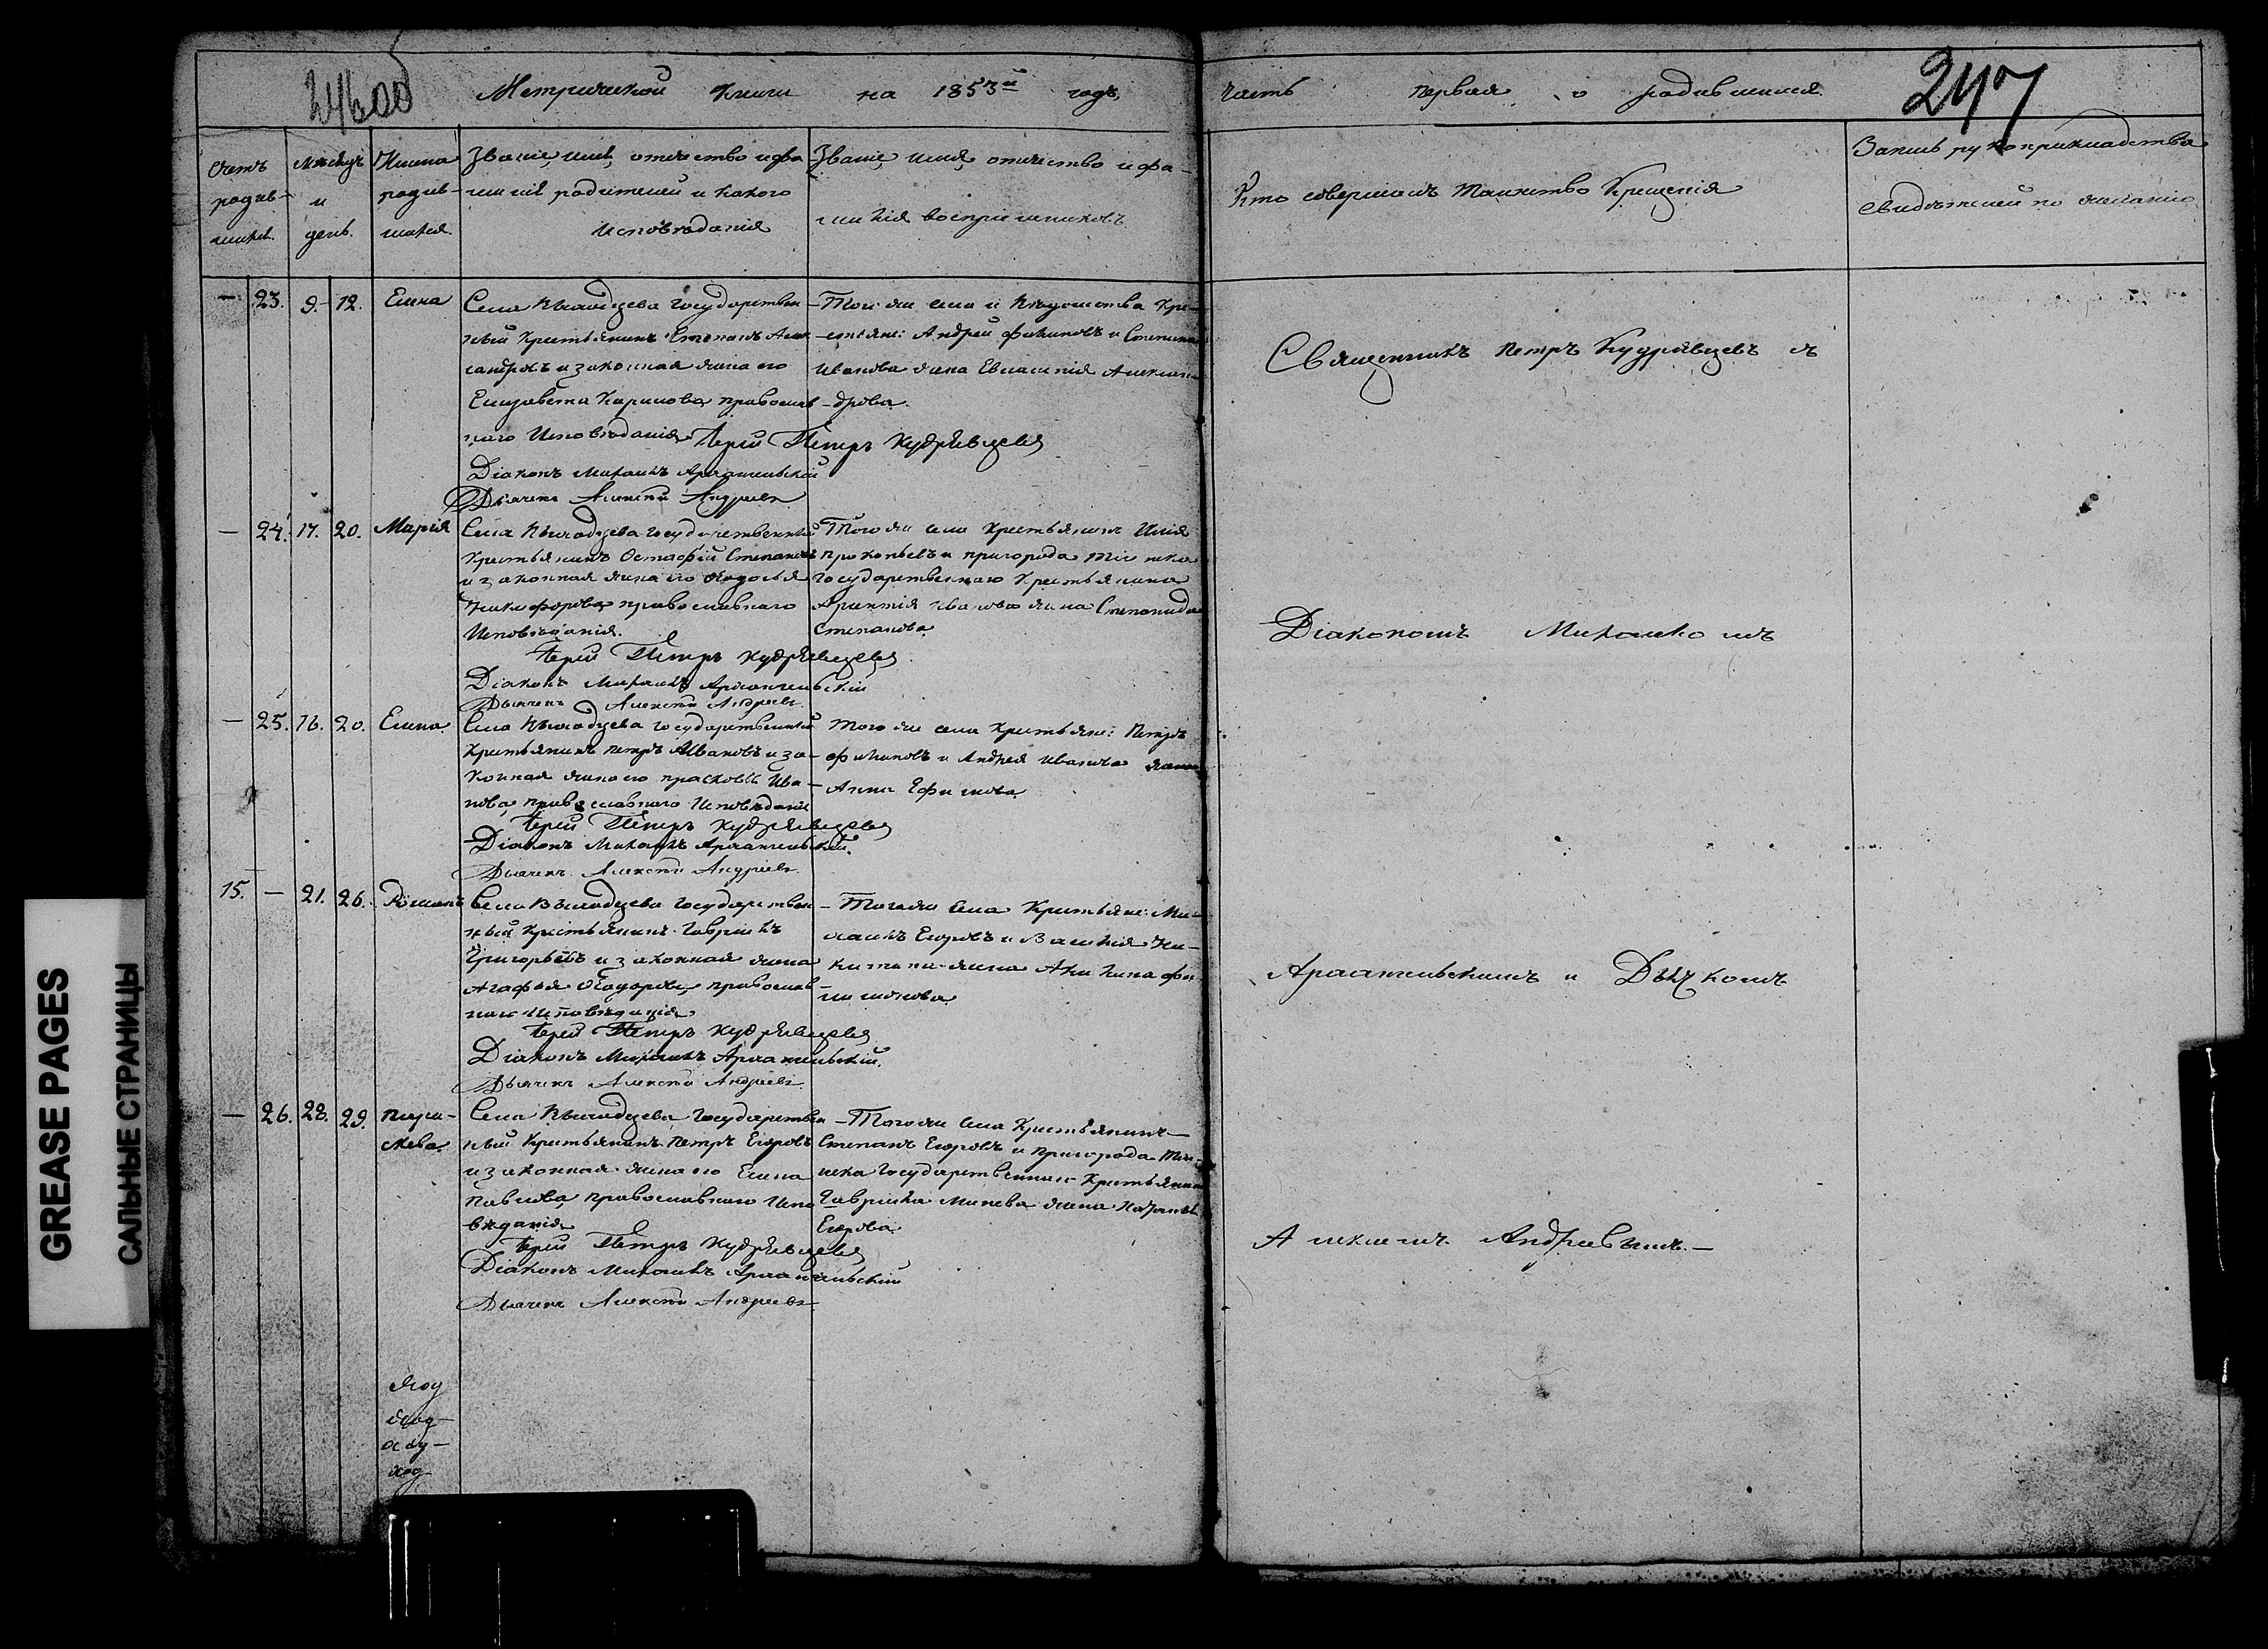 246об
Метрической книги на 1853й годъ,
часть первая о родившихся.
247
Счетъ родив-
шихся.
Мѣсяцъ
и
день.
Имена
родив-
шихся.
Званіе, имя, отчество и фа-
милія родителей и какого
исповѣданія
Званіе, имя, отчество и фа-
милія воспріемниковъ.
Кто совершалъ таинство крещенія
Запись рукоприкладства
свидѣтелей по желанію
— 23. 9. 12. Елена
Села государствен-
ный крестьянинъ Степанъ Алек-
сандровъ и законная жена его
Елизавета Карпова, православ-
наго исповѣданія
Того же села и крe-
стьяне: Андрей Филиповъ и Степана
Иванова жена Евлампія Алексан-
дрова.
Іерей Петръ Кудрявцевъ
Діаконъ Михаилъ Архангельскій
Дьячекъ Алексѣй Андреевъ
— 24. 17. 20. Марія
Села государственный
крестьянинъ Остафій Степановъ
и законная жена его Ѳедосья
Никифорова, православнаго
исповѣданія.
Того же села крестьянинъ Илія
Прокопьевъ и пригорода
государственнаго крестьянина
Иванова жена Степанида
Степанова
Іерей Петръ Кудрявцевъ
Діаконъ Михаилъ Архангельскій
Дьячекъ Алексѣй Андреевъ
— 25. 16. 20. Елена.
Села государственный
крестьянинъ Петръ Ивановъ и за-
конная жена его Прасковья Ива-
нова, православнаго исповѣданія
Того же села крестьяне: Петръ
Филиповъ и Андрея Иванова жена
Анна Ефимова.
Іерей Петръ Кудрявцевъ
Діаконъ Михаилъ Архангельскій.
Дьячекъ Алексѣй Андреевъ.
15. — 21. 26. Романъ
Села государствен-
ный крестьянинъ Гавріилъ
Григорьевъ и законная жена
Агафья Ѳедорова, православ-
наго исповѣданія
Того же села крестьяне: Ми-
хаилъ Егоровъ и Василія Ни-
китина жена Акилина Фи-
лимонова
Іерей Петръ Кудрявцевъ
Діаконъ Михаилъ Архангельскій.
Дьячекъ Алексѣй Андреевъ.
— 26. 28. 29. Параскева.
Села государствен-
ный крестьянинъ Петръ Егоровъ
и законная жена его Елена
Павлова, православнаго испо-
вѣданія
Того же села крестьянинъ
Степанъ Егоровъ и пригорода
государственнаго крестьянина
Гавріила Минеева жена
Егорова.
Іерей Петръ Кудрявцевъ
Діаконъ Михаилъ Архангельскій
Дьячекъ Алексѣй Андреевъ
Священникъ Петръ Кудрявцевъ съ
Діакономъ Михаиломъ
Архангельскимъ и Дьячкомъ
Алексѣемъ Андреевымъ.—
GREASE PAGES
САЛЬНЫЕ СТРАНИЦЫ